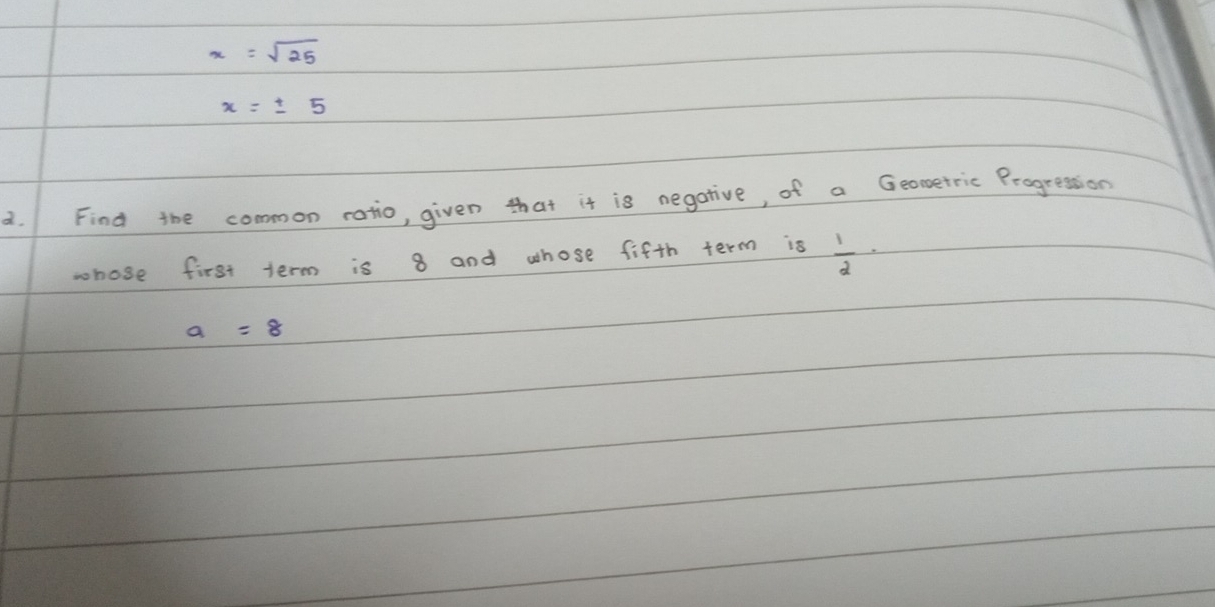 x = √25
x = ± 5
2. Find the common ratio, given that it is negative, of a Geometric Progression
whose first term is 8 and whose fifth term is 1/2.
a = 8